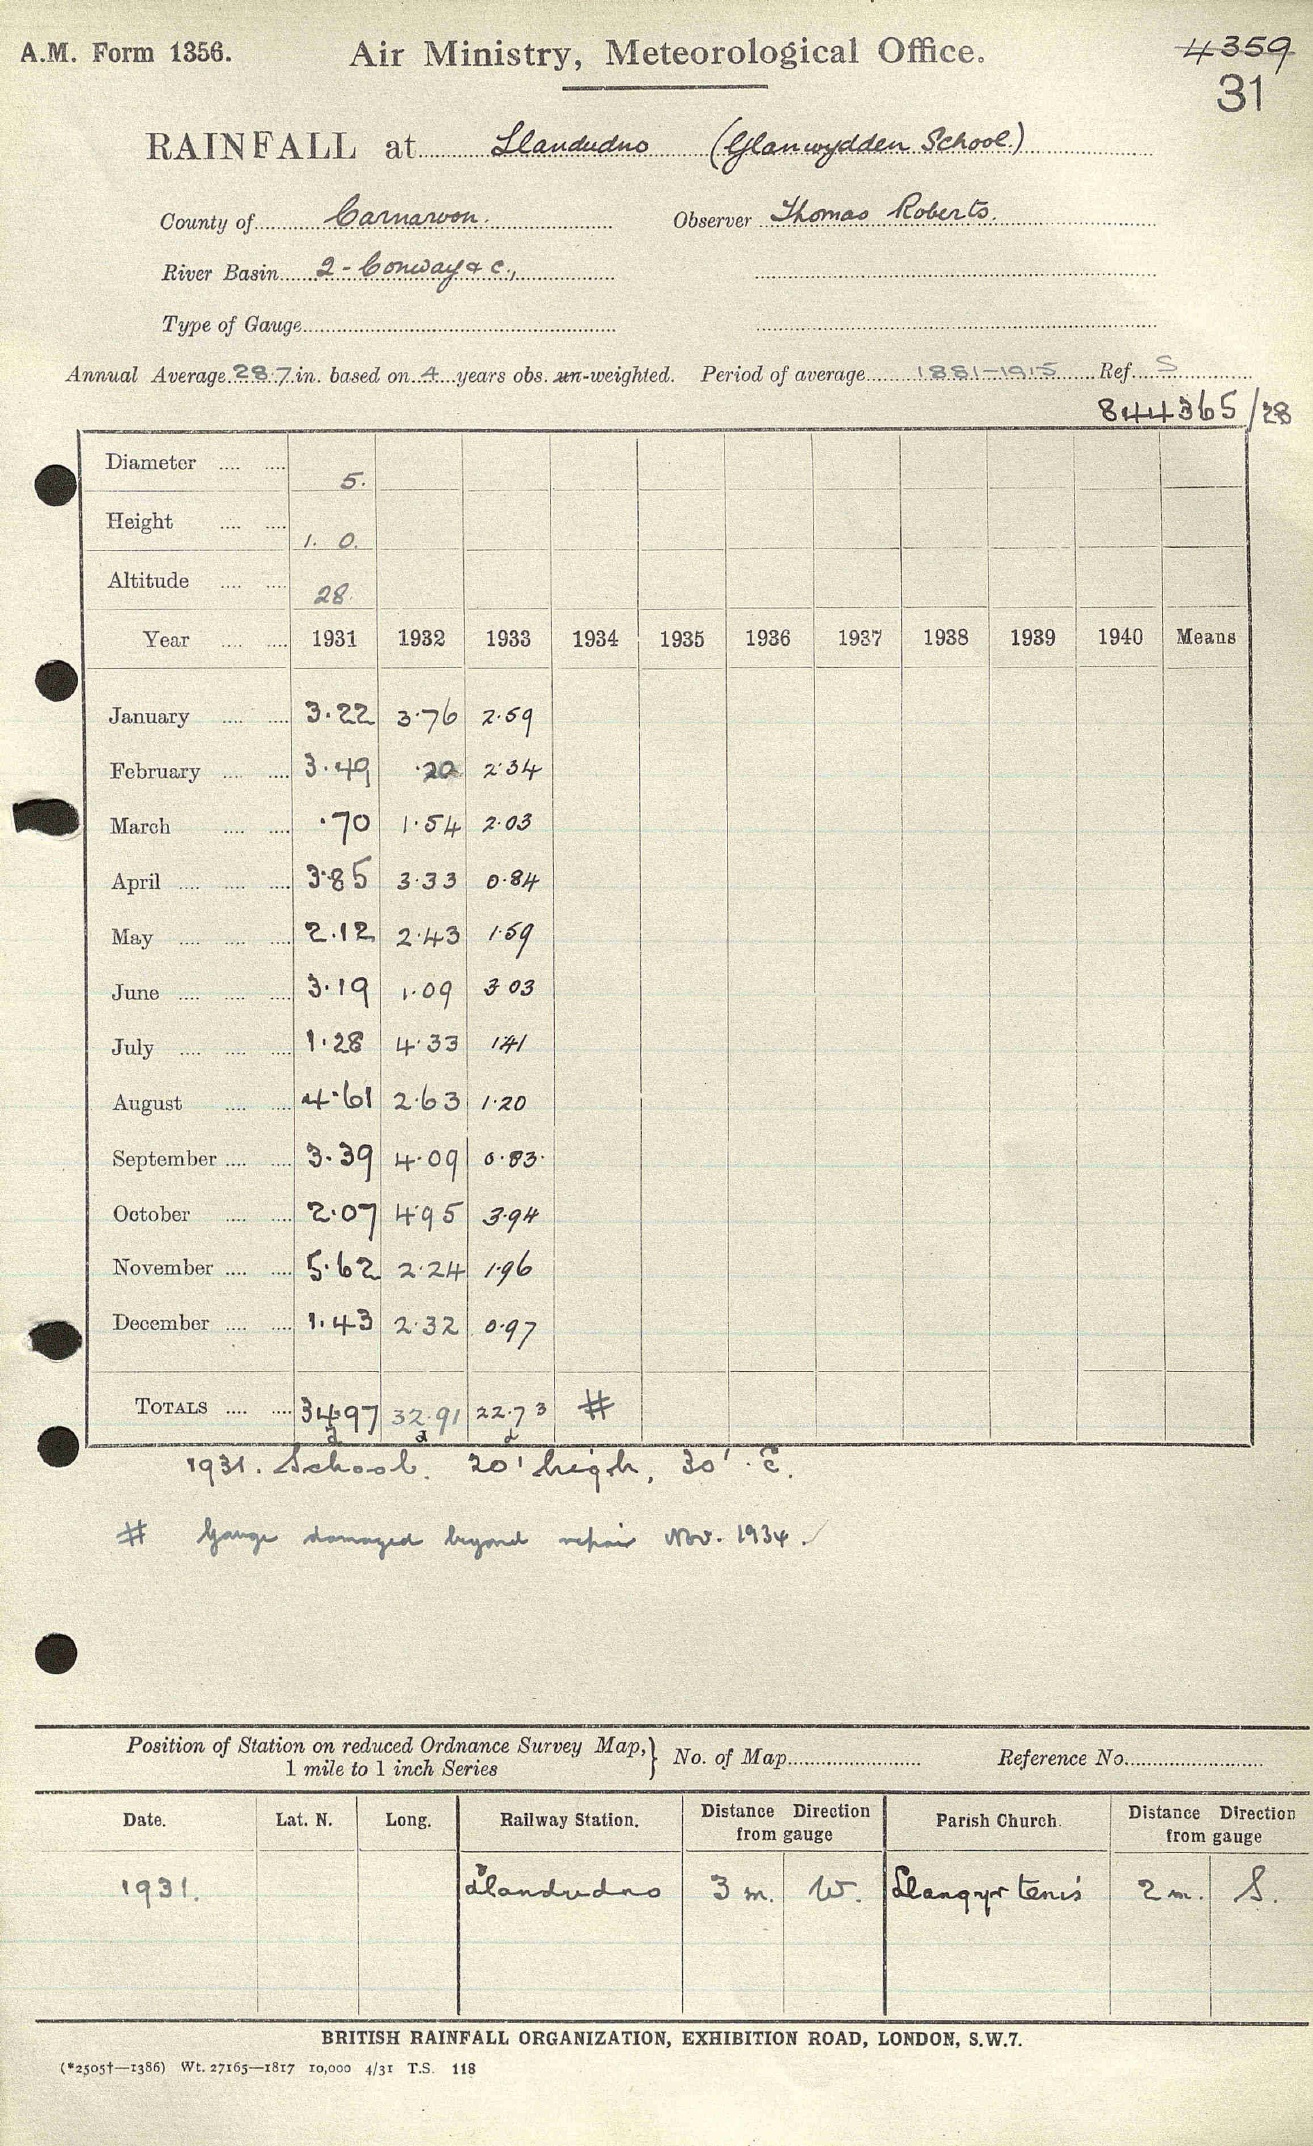 A.M. Form 1356. Air Ministry, Meteorological Office. 4359
31
RAINFALL at Llandudno (Glanwydden School.)
County of Carnarvon. Observer Thomas Roberts.
River Basin 2 - Conway & c.,
Type of Gauge
Annual Average 28.7 in. based on 4 years obs. un-weighted. Period of average 1881-1915 Ref. S
844365/28
Diameter 5.
Height 1. 0.
Altitude 28.
Year 1931 1932 1933 1934 1935 1936 1937 1938 1939 1940 Means
January 3.22 3.76 2.59
February 3.49 .20 2.34
March .70 1.54 2.03
April 3.85 3.33 0.84
May 2.12 2.43 1.59
June 3.19 1.09 3 03
July 1.28 4.33 1.41
August 4.61 2.63 1.20
September 3.39 4.09 0.83
October 2.07 4.95 3.94
November 5.62 2.24 1.96
December 1.43 2.32 0.97
TOTALS 34.97 32.91 22.73 #
a a a
1931. School. 20' high, 30' E.
# Gauge damaged beyond repair Nov. 1934.
Position of Station on reduced Ordnance Survey Map, } No. of Map Reference No.
1 mile to 1 inch Series
Date. Lat. N. Long. Railway Station. Distance Direction from gauge Parish Church. Distance Direction from gauge
1931. Llandudno 3 m. W. Llangystenis 2 m. S.
BRITISH RAINFALL ORGANIZATION, EXHIBITION ROAD, LONDON, S.W.7.
(*2505†—1386) Wt. 27165—1817 10,000 4/31 T.S. 118